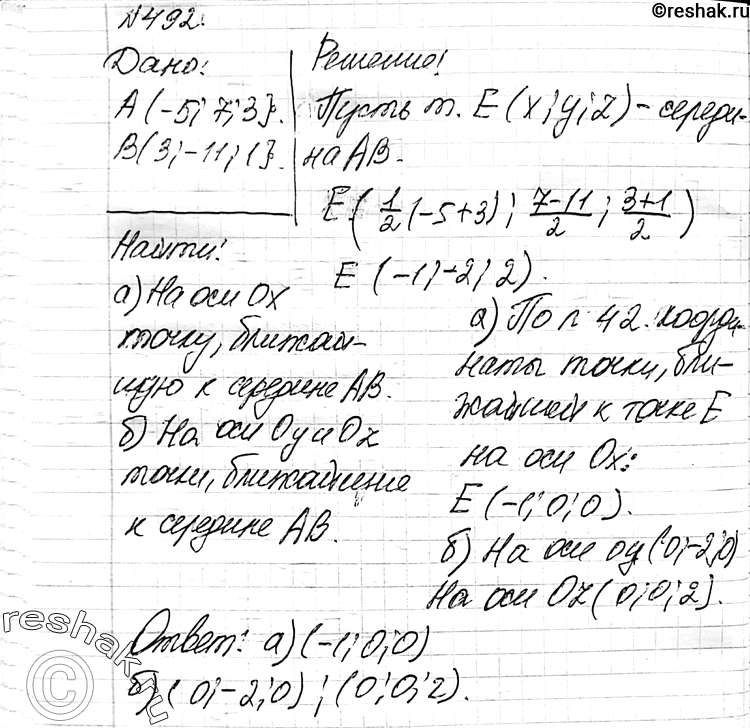 ©reshak.ru
№492.
Дано:
A (-5; 7; 3}.
B(3; -11; 1}.
Найти:
а) На оси Ox
точку, ближай-
шую к середине AB.
б) На оси Oy и Oz
точки, ближайшие
к середине AB.
Решение:
Пусть т. E (x; y; z) - середи-
на AB.
E ( 1/2 (-5+3) ; 7-11/2 ; 3+1/2 )
E (-1; -2; 2).
а) По п 42. коорди-
наты точки, бли-
жайшей к точке E
на оси Ox:
E (-1; 0; 0).
б) На оси oy (0; -2; 0)
На оси Oz (0; 0; 2).
Ответ: а) (-1; 0; 0)
б) (0; -2; 0) ; (0; 0; 2).
©reshak.ru